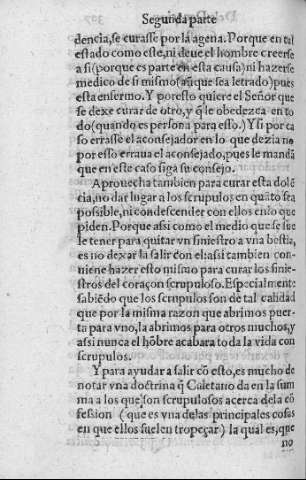 Segunda parte
dencia, se curasse por la agena. Porque en tal
estado como este, ni deue el hombre creerse
a si (porque es parte en esta causa) ni hazerse
medico de si mismo (aũque sea letrado) pues
esta enfermo. Y por esto quiere el Señor que
se dexe curar de otro, y q̃ le obedezca en to
do (quando es persona para esso.) Y si por ca
so errasse el aconsejador en lo que dezia no
por esso erraua el aconsejado, pues le mandã
que en este caso siga su consejo.
Aprouecha tambien para curar esta dolẽ
cia, no dar lugar a los scrupulos en quãto sea
possible, ni condescender con ellos enlo que
piden. Porque assi como el medio que se sue
le tener para quitar vn siniestro a vna bestia,
es no dexar la salir con el: assi tambien con-
uiene hazer esto mismo para curar los sinie-
stros del coraçon scrupuloso. Especialment:
sabiẽdo que los scrupulos son de tal calidad
que por la misma razon que abrimos puer-
ta para vno, la abrimos para otros muchos, y
assi nunca el hõbre acabara toda la vida con
scrupulos.
Y para ayudar a salir cõ esto, es mucho de
notar vna doctrina q̃ Caietano da en la sum
ma a los que son scrupulosos acerca dela cõ
fession (que es vna delas principales cosas
en que ellos suelen tropeçar) la qual es, que
no